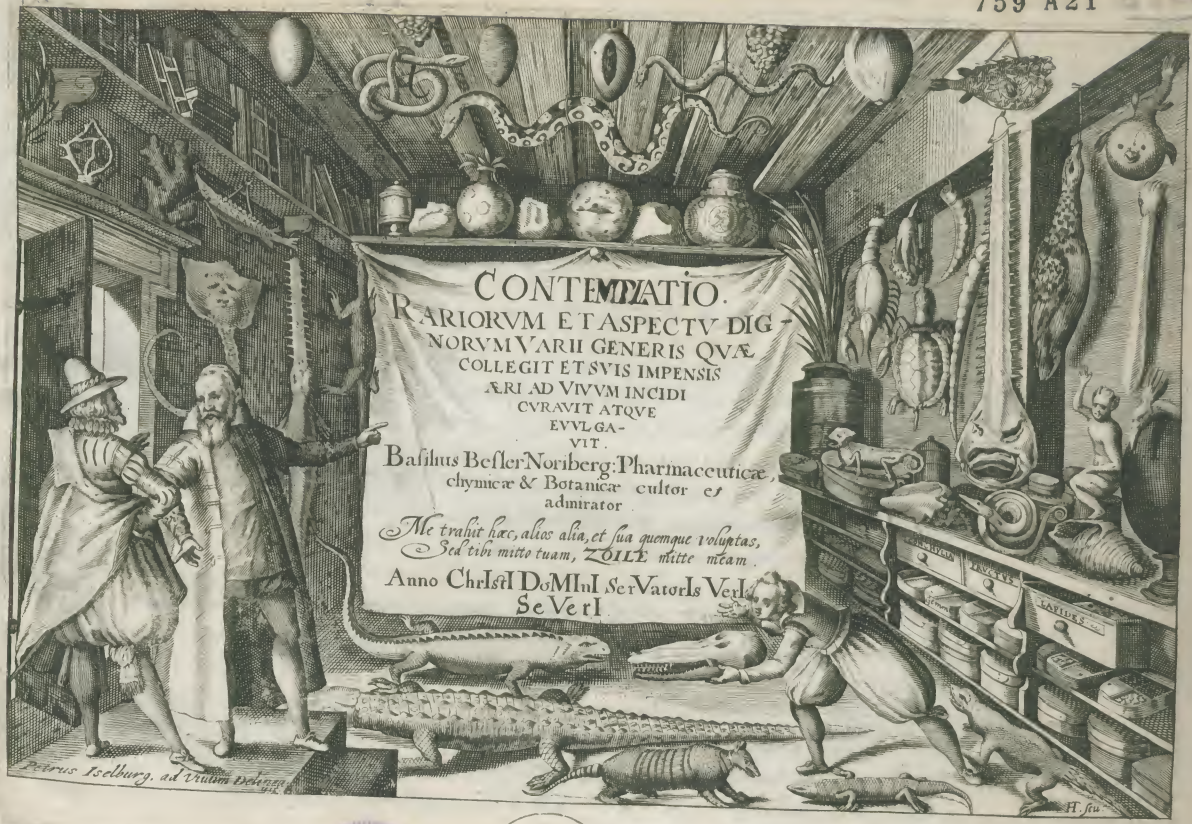 759 A21
CONTEMPLATIO.
RARIORVM ET ASPECTV DIG-
NORVM VARII GENERIS QVÆ
COLLEGIT ET SVIS IMPENSIS
ÆRI AD VIVVM INCIDI
CVRAVIT ATQVE
EVVLGA-
VIT.
Basilius Besler Noriberg: Pharmaceuticæ,
chymicæ & Botanicæ cultor et
admirator.
Me trahit hæc, alios alia, et sua quemque voluptas,
Sed tibi mitto tuam, ZOILE mitte meam.
Anno ChrIstI DoMInI SerVatorIs VerI
SeVerI.
FRUCTUS
LAPIDES
Petrus Iselburg. ad Vivum Delinea
HT. scu.